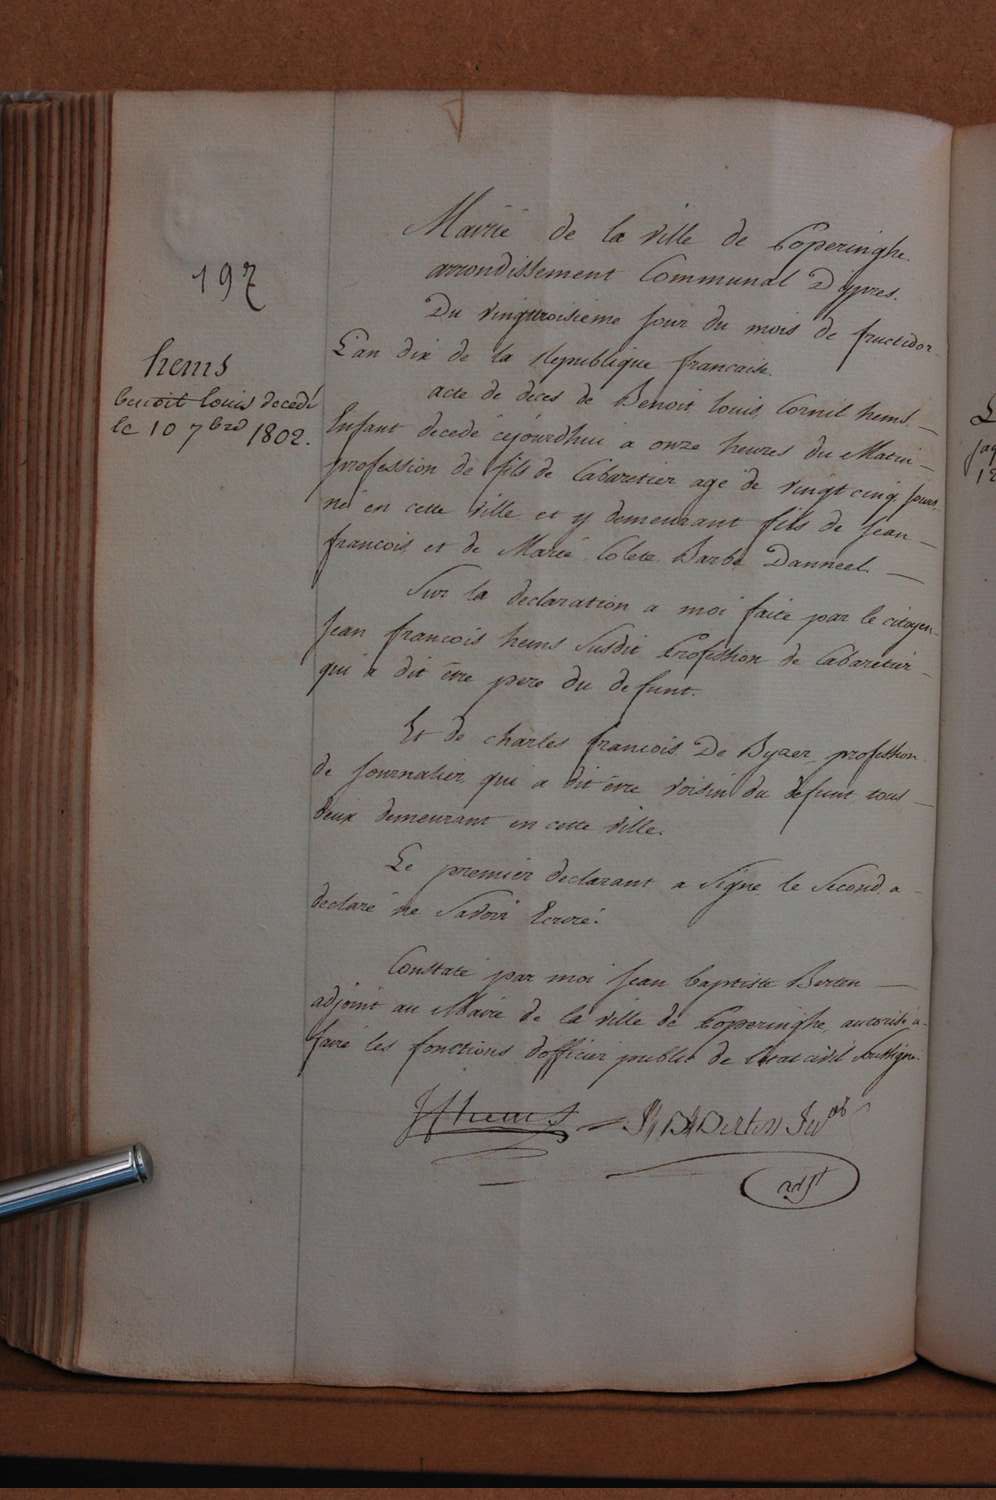 197
hems
benoit louis decedé
le 10 7bre 1802.
Mairie de la ville de Poperinghe
arrondissement Communal D'ypres.
Du vingttroisieme jour du mois de fructidor
L'an dix de la Republique francaise.
acte de deces de Benoit louis Cornil hems,
Enfant decedé cejourdhui a onze heures du Matin
profession de fils de Cabaretier agé de vingt cinq jours,
né en cette ville et y demeurant fils de Jean
francois et de Marie Colete Barbe Danneel.
Sur la declaration a moi faite par le citoyen
Jean francois hems Susdit Profession de Cabaretier
qui a dit être pere du defunt.
Et de charles francois De Byzer profession
de journalier qui a dit être voisin du defunt tous
deux demeurant en cette ville.
Le premier declarant a Signé le Second a
declaré ne Savoir Ecrire.
Constaté par moi Jean baptiste Berten
adjoint au Maire de la ville de Poperinghe, autorisé a
faire les fonctions d'officier public de l'etat civil Soussigné.
JF hems
J: B: Berten
adjt